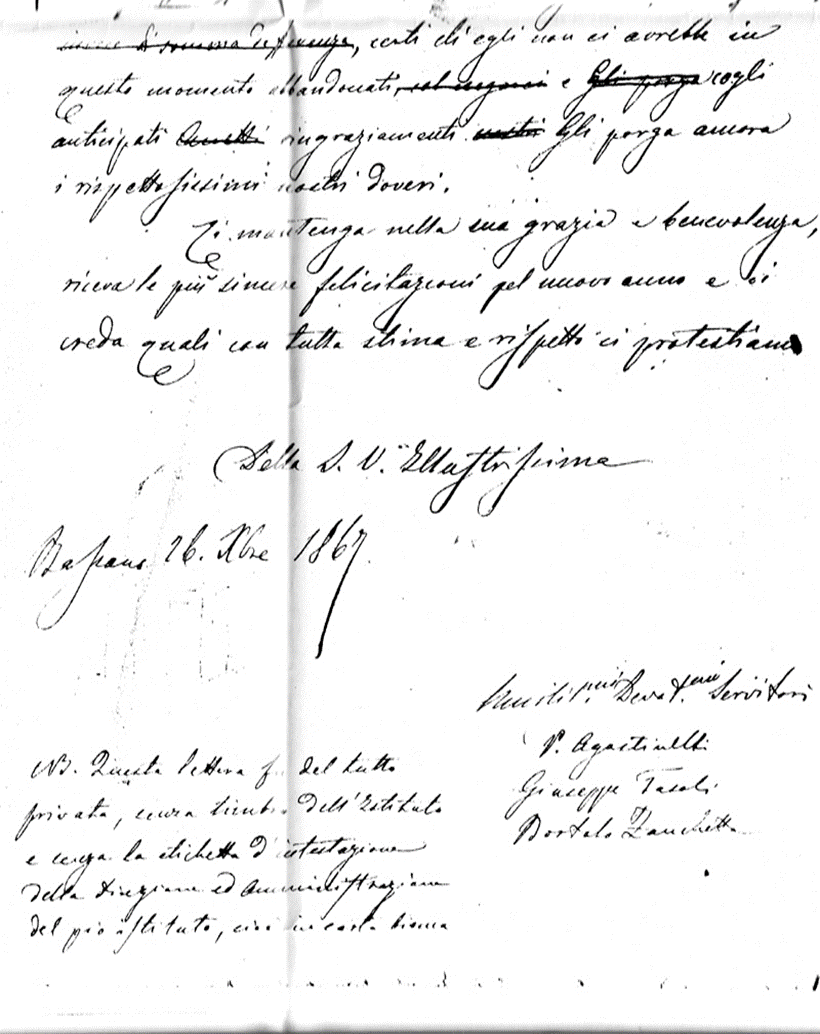 di somma deferenza, certi di egli non ci avrebbe in
questo momento abbandonati, e Gli porga cogli
anticipati ringraziamenti nostri Gli porga ancora
i rispettosissimi nostri doveri.
Ci mantenga nella sua grazia e benevolenza,
riceva le più sincere felicitazioni pel nuovo anno e ci
creda quali con tutta stima e rispetto ci protestiamo
Della S. V. Illustrissima
Bassano 26. Xbre 1867
Umilis.mi Devot.mi Servitori
P. Agostinelli
Giuseppe Tasoli
Bortolo Zanchetta
NB. Questa lettera fu del tutto
privata, senza timbro dell'Istituto
e senza la etichetta d'intestazione
della Direzione ed Amministrazione
del pio istituto, cioè in carta bianca